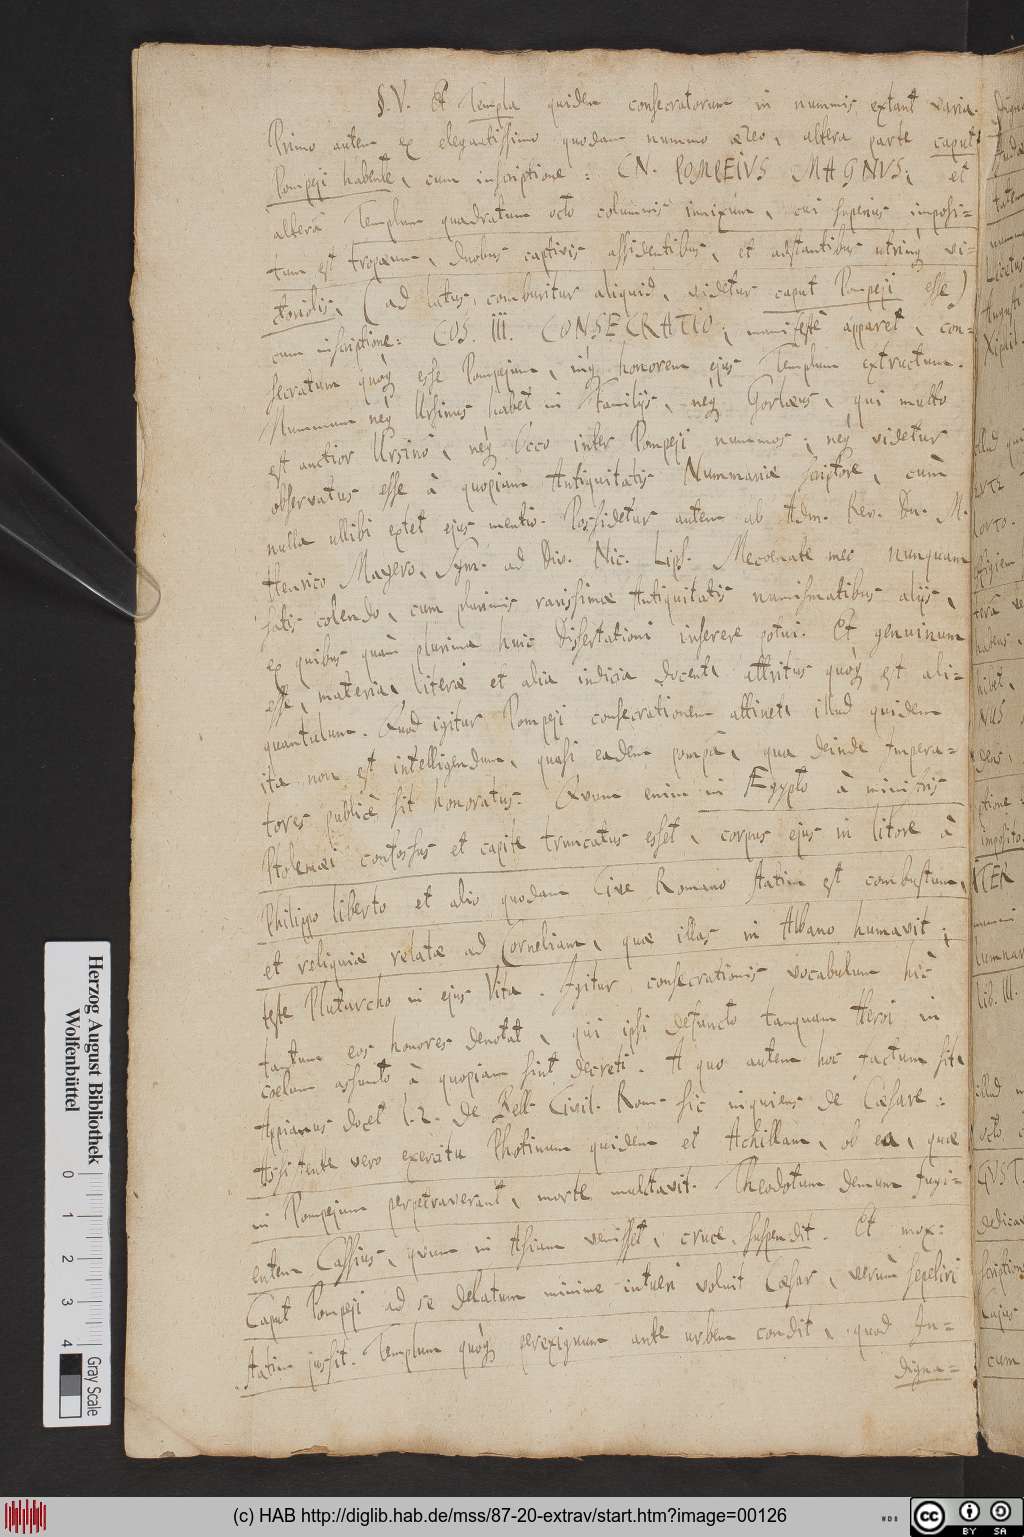 §. V. Et Templa quidem consecratorum in nummis extant varia.
Primo autem ex elegantissimo quodam nummo æreo, altera parte caput
Pompeji habente, cum inscriptione: CN. POMPEIVS MAGNVS; et
alterâ Templum quadratum octo columnis innixum, cui superius imposi=
tum est tropæum, duobus captivis assidentibus, et adstantibus utrinq́ vi=
ctoriolis, (ad latus, comburitur aliquid, videtur caput Pompeji esse)
cum inscriptione: COS. III. CONSECRATIO; manifestè apparet, con=
secratum quoq́ esse Pompejum, inq́ honorem ejus Templum extructum.
Nummum neq́ Ursinus habet in Familijs, neq́ Gorlæus, qui multo
est auctior Ursino, neq́ Occo inter Pompeji nummos; neq́ videtur
observatus esse à quopiam Antiquitatis Nummariæ scriptore, cum
nulla ullibi extet ejus mentio. Possidetur autem ab Adm. Rev. Dn. M.
Henrico Mayero, Sym. ad Div. Nic. Lips. Mecoenate meo nunquam
satis colendo, cum plurimis rarissimæ Antiquitatis numismatibus alijs,
ex quibus quàm plurima huic Dissertationi inserere potui. Et genuinum
esse, materia, literæ et alia indicia docent, attritus quoq́ est ali=
quantulum. Quod igitur Pompeji consecrationem attinet, illud quidem
ita non est intelligendum, quasi eadem pompâ, qua deinde Impera=
tores publicè sit honoratus. Qvum enim in Ægypto à ministris
Ptolemæi confossus et capite truncatus esset, corpus ejus in litore à
Philippo liberto et alio quodam Cive Romano statim est combustum,
et reliquiæ relatæ ad Corneliam, quæ illas in Albano humavit;
teste Plutarcho in ejus Vita. Igitur consecrationis vocabulum hîc
tantum eos honores denotat, qui ipsi defuncto tanquam Heroi in
coelum assumto à quopiam sint decreti. A quo autem hoc factum sit,
Appianus docet l. 2. de Bell. Civil. Rom. sic inquiens de Cæsare:
Assistente vero exercitu Photinum quidem et Achillam, ob ea, quæ
in Pompejum perpetraverant, morte multavit. Theodotum demum fugi=
entem Cassius, qvum in Asiam venisset, cruce suspendit. Et mox:
Caput Pompeji ad se delatum minime intueri voluit Cæsar, verum sepeliri
statim jussit. Templum quoq́ perexiguum ante urbem condit, quod In=
digna=
Herzog August Bibliothek
Wolfenbüttel
0 1 2 3 4
Gray Scale
(c) HAB http://diglib.hab.de/mss/87-20-extrav/start.htm?image=00126
cc BY SA